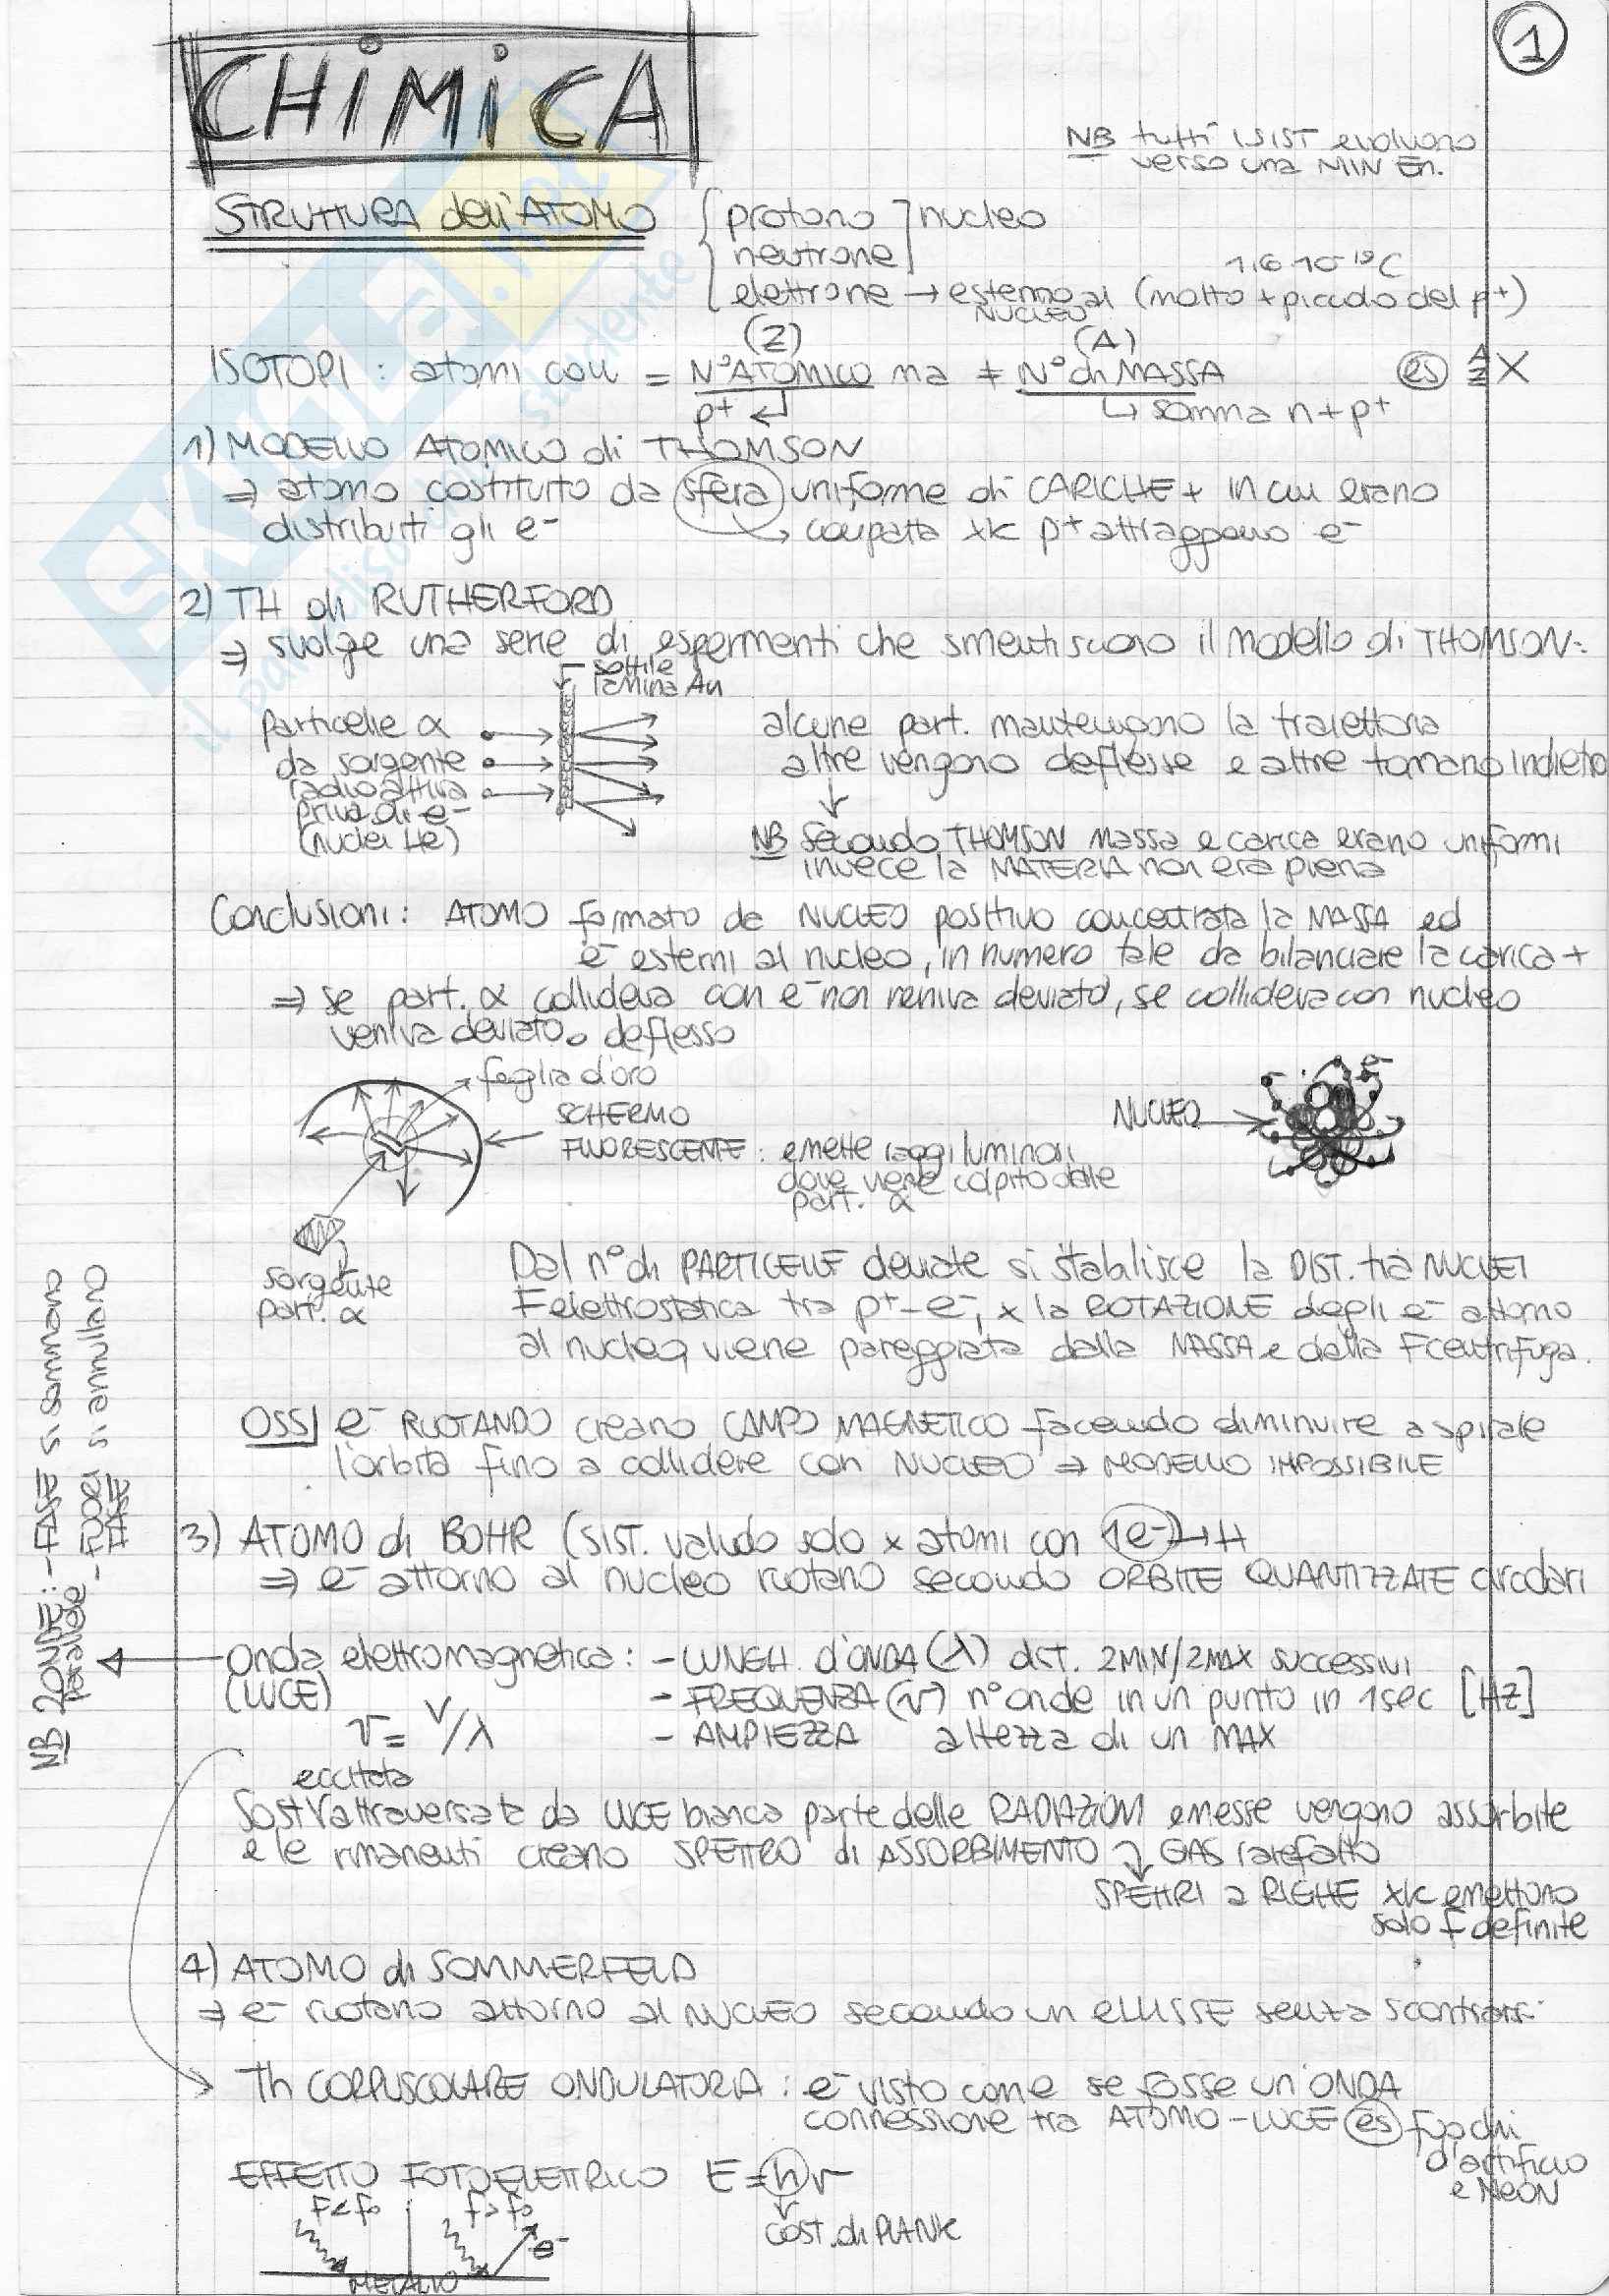 1
CHiMiCA
NB tutti i SIST evolvono
verso una MIN En.
STRUTTURA dell'ATOMO { protono ] nucleo
neutrone
1,6·10⁻¹⁹C
elettrone → esterno al NUCLEO (molto + piccolo del p⁺)
(Z) (A)
ISOTOPI : atomi con = N°ATOMICO ma ≠ N° di MASSA es ᴬ_Z X
p⁺ ↲ ↳ somma n+p⁺
1) MODELLO ATOMICO di THOMSON
⇒ atomo costituito da sfera uniforme di CARICHE + in cui erano
distribuiti gli e⁻ → compatta xk p⁺ attraggono e⁻
2) TH di RUTHERFORD
⇒ svolge una serie di esperimenti che smentiscono il modello di THOMSON:
sottile
lamina Au
particelle α
da sorgente
radioattiva
priva di e⁻
(nuclei He)
alcune part. mantengono la traiettoria
altre vengono deflesse e altre tornano indietro
↓
NB Secondo THOMSON massa e carica erano uniformi
invece la MATERIA non era piena
Conclusioni: ATOMO formato da NUCLEO positivo concentrata la MASSA ed
e⁻ esterni al nucleo, in numero tale da bilanciare la carica +
⇒ se part. α collideva con e⁻ non veniva deviato, se collideva con nucleo
veniva deviato o deflesso
foglia d'oro
SCHERMO
FLUORESCENTE : emette raggi luminosi
dove viene colpito dalle
part. α
NUCLEO
e⁻
sorgente
part. α
Dal n° di PARTICELLE deviate si stabilisce la DIST. tra NUCLEI
F elettrostatica tra p⁺-e⁻, x la ROTAZIONE degli e⁻ attorno
al nucleo, viene pareggiata dalla MASSA e dalla Fcentrifuga.
OSS] e⁻ RUOTANDO creano CAMPO MAGNETICO facendo diminuire a spirale
l'orbita fino a collidere con NUCLEO ⇒ MODELLO IMPOSSIBILE
3) ATOMO di BOHR (SIST. valido solo x atomi con 1e⁻)→H
⇒ e⁻ attorno al nucleo ruotano secondo ORBITE QUANTIZZATE circolari
onda elettromagnetica : - LUNGH. d'ONDA (λ) dist. 2MIN/2MAX successivi
(LUCE) - FREQUENZA (ν) n° onde in un punto in 1sec [Hz]
ν= V/λ - AMPIEZZA altezza di un MAX
NB 2ONDE: - FASE si sommano
parallele - FUORI si annullano
FASE
eccitata
Sost √ attraversata da LUCE bianca parte delle RADIAZIONI emesse vengono assorbite
e le rimanenti creano SPETTRO di ASSORBIMENTO GAS rarefatto
SPETTRI a RIGHE xk emettono
solo f definite
4) ATOMO di SOMMERFELD
⇒ e⁻ ruotano attorno al NUCLEO secondo un eLLISSE senza scontrarsi
Th CORPUSCOLARE ONDULATORIA : e⁻ visto come se fosse un'ONDA
connessione tra ATOMO-LUCE es fuochi
d'artificio
e NeON
EFFETTO FOTOELETTRICO E=hν
f<f₀ f>f₀
e⁻
cost. di PLANK
METALLO
SKUOLA.net
il paradiso dello studente